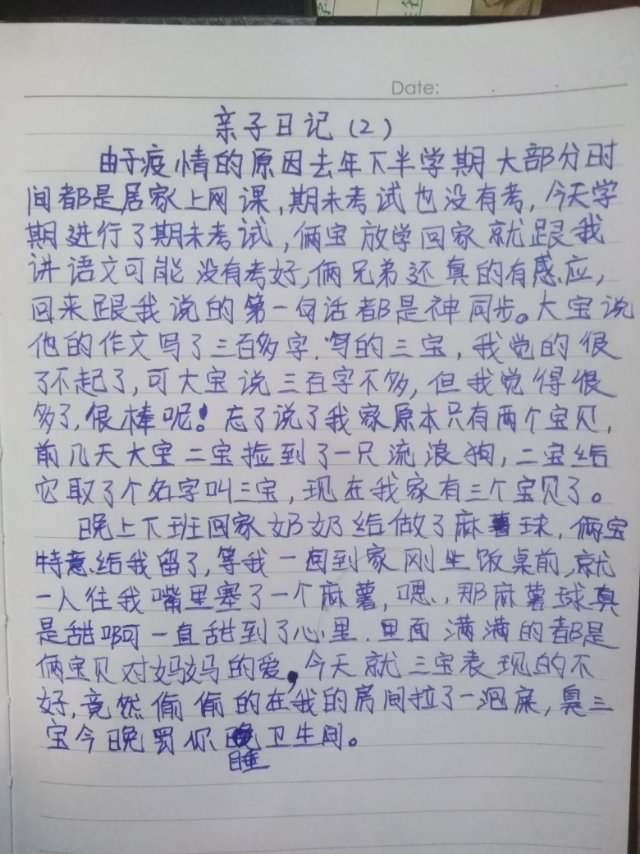 Date:
亲子日记(2)
由于疫情的原因去年下半学期大部分时
间都是居家上网课,期末考试也没有考,今天学
期进行了期末考试,俩宝放学回家就跟我
讲语文可能没有考好,俩兄弟还真的有感应,
回来跟我说的第一句话都是神同步。大宝说
他的作文写了三百多字,写的三宝,我觉的很
了不起了,可大宝说三百字不多,但我觉得很
多了,很棒呢!忘了说了我家原本只有两个宝贝,
前几天大宝二宝捡到了一只流浪狗,二宝给
它取了个名字叫三宝,现在我家有三个宝贝了。
晚上下班回家奶奶给做了麻薯球,俩宝
特意给我留了,等我一回到家刚坐饭桌前,就
一人往我嘴里塞了一个麻薯,嗯,那麻薯球真
是甜啊可一直甜到了心里.里面满满的都是
俩宝贝对妈妈的爱,今天就三宝表现的不
好,竟然偷偷的在我的房间拉了一泗屎,臭三
宝今晚罚你睡卫生间。